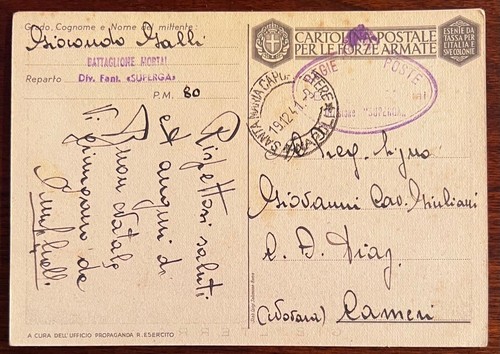 Grado, Cognome e Nome del mittente:
Giocondo Galli
BATTAGLIONE MORTAI
Reparto Div. Fant. «SUPERGA»
P.M. 80
Rispettosi saluti
et auguri di
Buon Natale
Vi giungano da
CARTOLINA POSTALE
PER LE FORZE ARMATE
ESENTE DA
TASSA PER
L'ITALIA E
SVE COLONIE
REGIE POSTE
"SUPERGA"
SANTA MARIA CAPUA VETERE
19.12.41
NAPOLI
Al Preg. Signo
Giovanni Cav. Giuliani
Diaz
(Novara) Cameri
A CURA DELL'UFFICIO PROPAGANDA R. ESERCITO